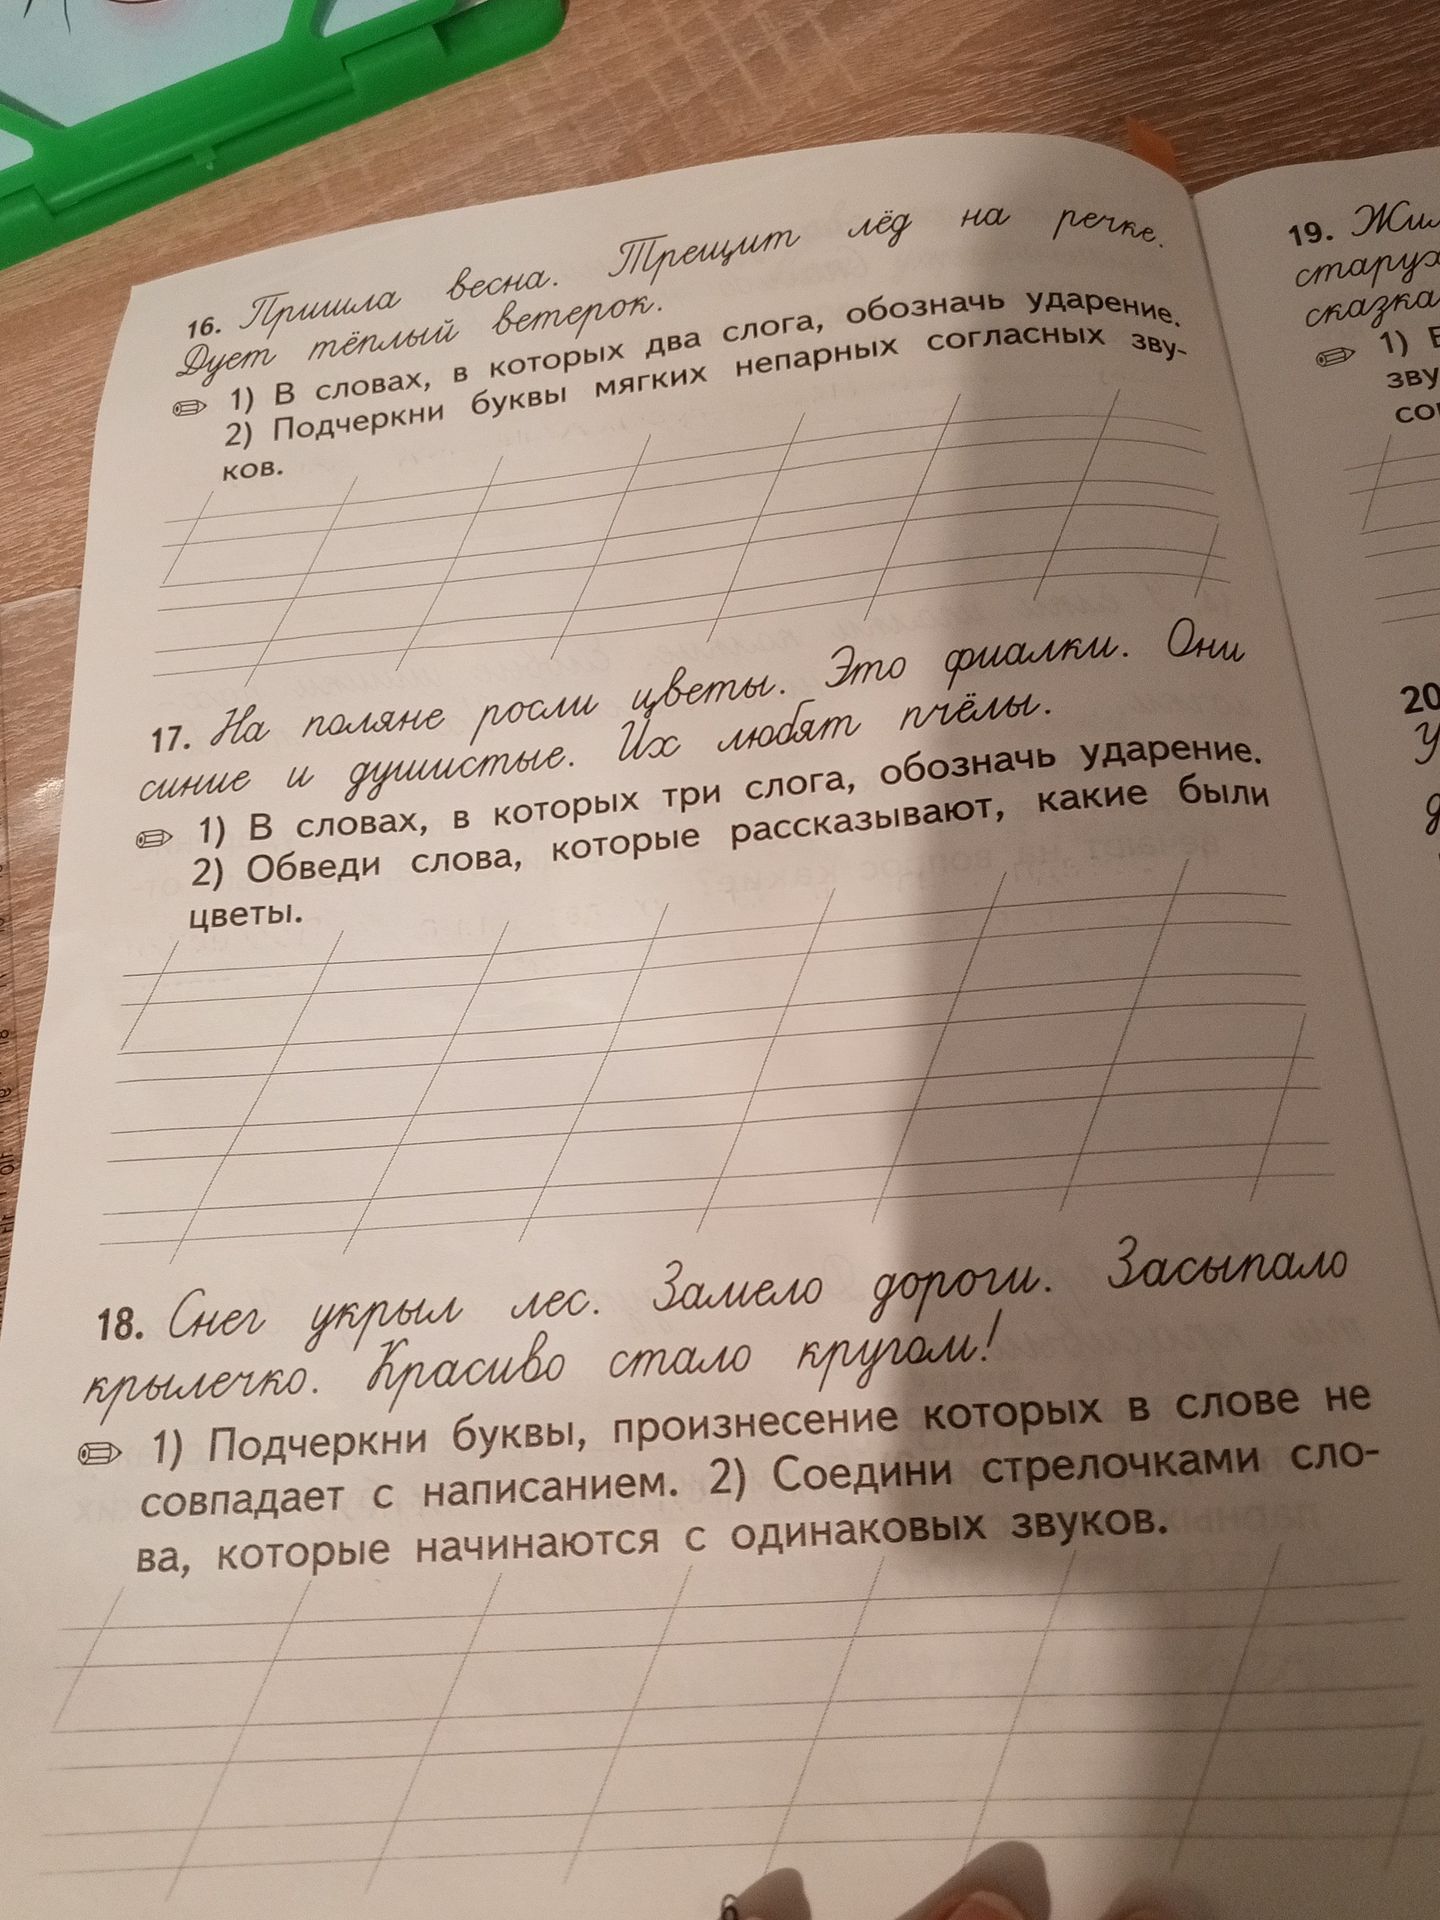 16. Пришла весна. Трещит лёд на речке.
Дует тёплый ветерок.
1) В словах, в которых два слога, обозначь ударение.
2) Подчеркни буквы мягких непарных согласных зву-
ков.
17. На поляне росли цветы. Это фиалки. Они
синие и душистые. Их любят пчёлы.
1) В словах, в которых три слога, обозначь ударение.
2) Обведи слова, которые рассказывают, какие были
цветы.
18. Снег укрыл лес. Замело дороги. Засыпало
крылечко. Красиво стало кругом!
1) Подчеркни буквы, произнесение которых в слове не
совпадает с написанием. 2) Соедини стрелочками сло-
ва, которые начинаются с одинаковых звуков.
19.
сказка
1)
зву
20